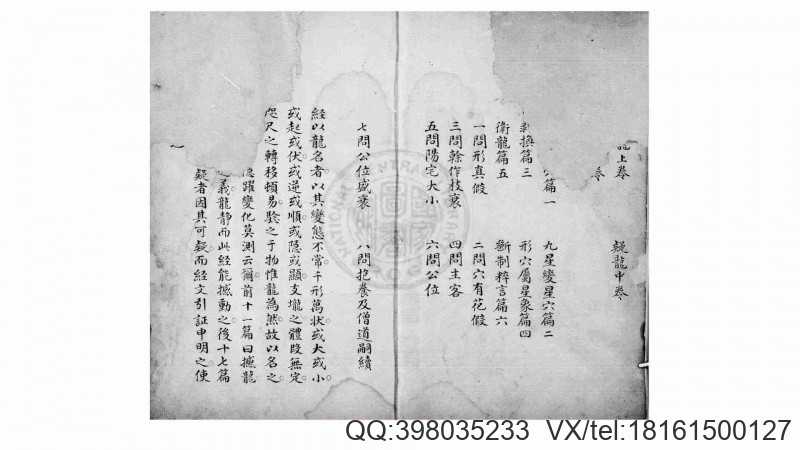 上卷
卷 疑龍中卷
篇一 九星變星穴篇二
撰篇三 形穴屬星象篇四
衛龍篇五 斷制粹言篇六
一問形真假 二問穴有花假
三問榦作枝裏 四問主客
五問陽宅大小 六問公位
七問公位盛衰 八問抱養及僧道嗣續
經以龍名者以其變態不常千形萬狀或大或小
或起或伏或逆或順或隱或顯支壠之體段無定
咫尺之轉移頓易驗之于物惟龍為然故以名之
躍變化莫測云爾前十一篇曰撼龍
義龍静而此經能撼動之後十七篇
疑者因其可疑而經文引証申明之使
QQ:398035233 VX/tel:18161500127